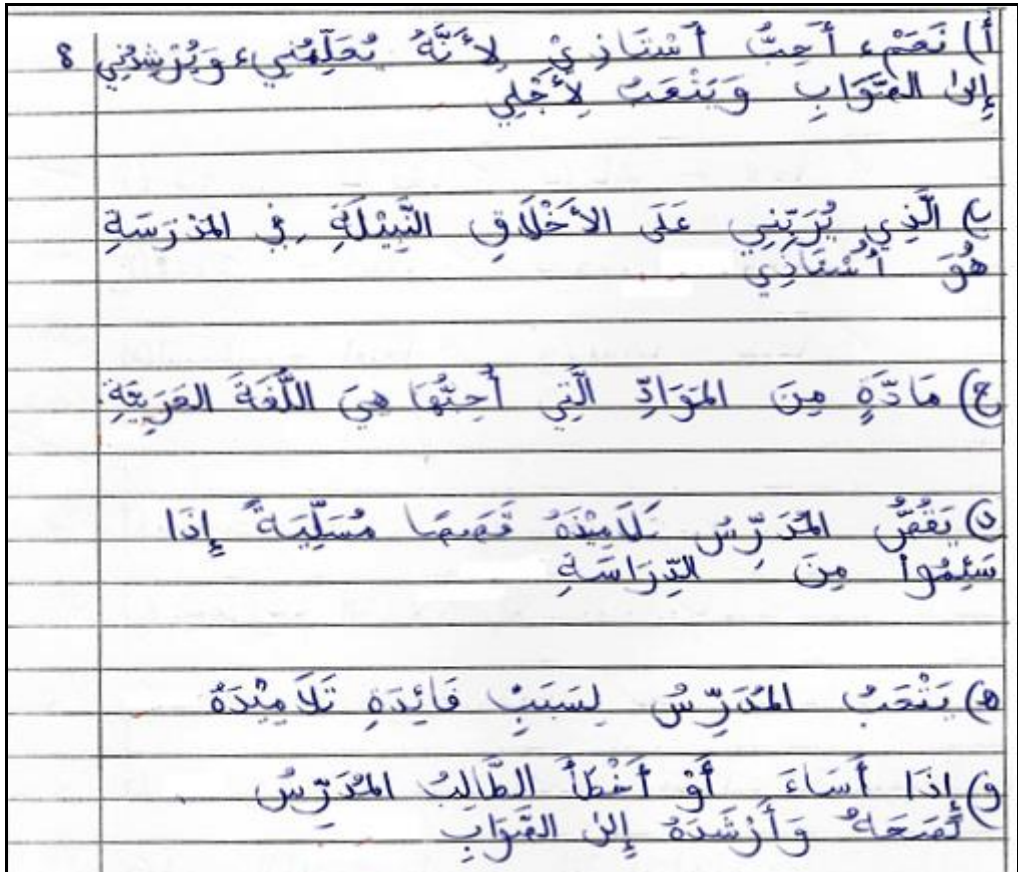 أ) نَعَمْ، أُحِبُّ أُسْتَاذِيْ لِأَنَّهُ يُعَلِّمُنِي، وَيُرْشِدُنِي 8
إِلىٰ الصَّوَابِ وَيَتْعَبُ لِأَجْلِي
ب) الَّذِي يُرَبِّنِي عَلَى الأَخْلَاقِ النَّبِيْلَةِ فِي المَدْرَسَةِ
هُوَ أُسْتَاذِي
ج) مَادَّةٍ مِنَ المَوَادِّ الَّتِي أُحِبُّهَا هِيَ اللُّغَةَ العَرَبِيَّةِ.
د) يَقُصُّ المُدَرِّسُ تَلَامِيْذَهُ قَصِصًا مُسَلِّيَةً إِذَا
سَئِمُوا مِنَ الدِّرَاسَةِ
ه) يَتْعَبُ المُدَرِّسُ لِسَبَبِ فَائِدَةِ تَلَامِيْذَهُ
و) إِذَا أَسَاءَ أَوْ أَخْطَأَ الطَّالِبُ المُدَرِّسُ
نَصَحَهُ وَأَرْشَدَهُ إِلىٰ الصَّوَابِ